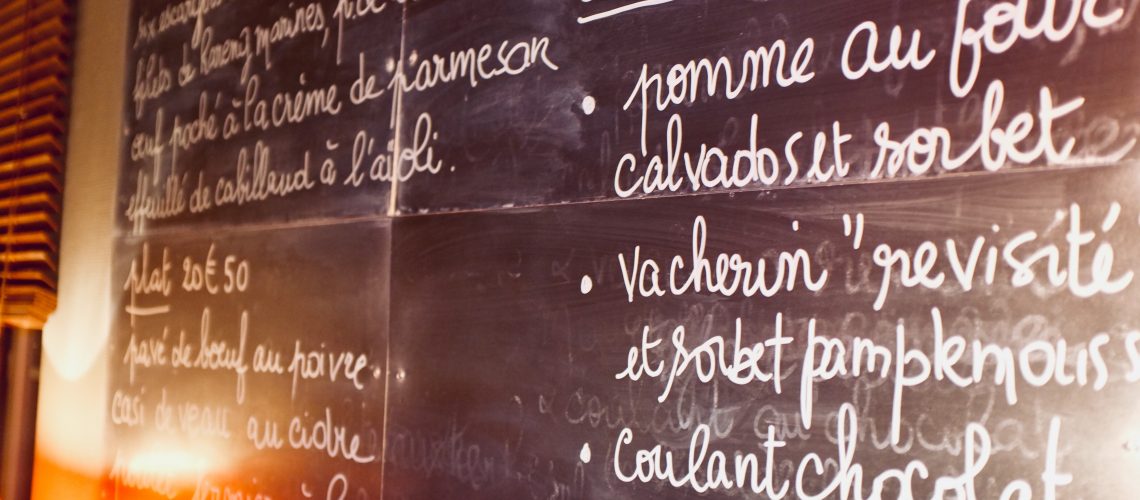 filets de hareng marinés, p.
œuf poché à la crème de parmesan
effeuillé de cabillaud à l'aïoli.
plat 20€50
pavé de bœuf au poivre.
casi de veau au cidre
• pomme au four
calvados et sorbet
• vacherin "revisité
et sorbet pamplemouss
• coulant chocolat